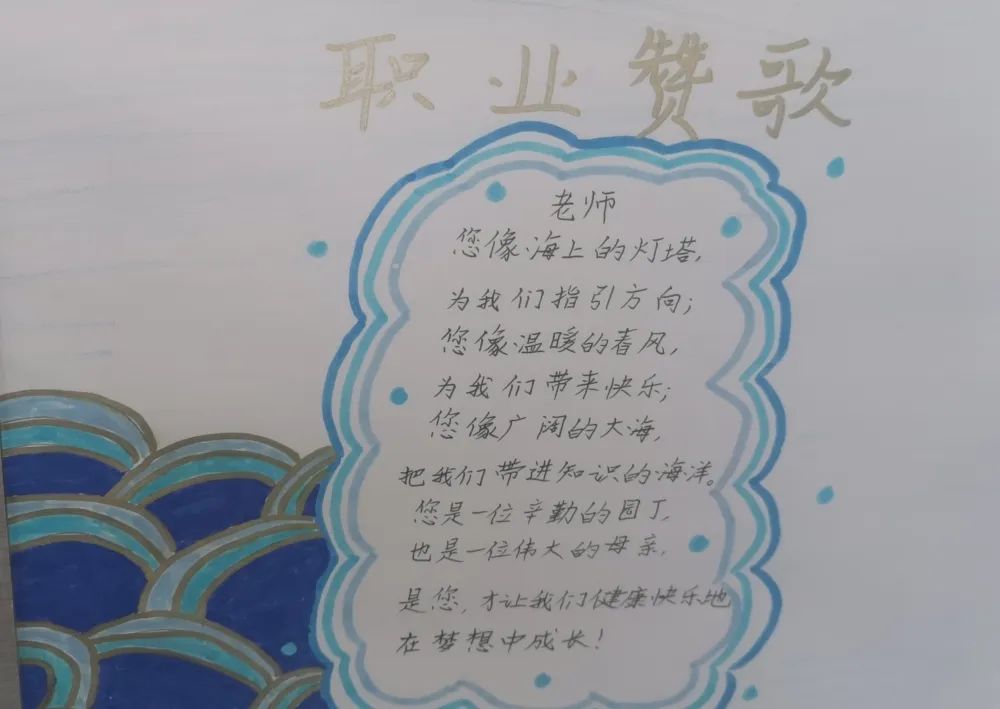 职业赞歌
老师
您像海上的灯塔,
为我们指引方向;
您像温暖的春风,
为我们带来快乐;
您像广阔的大海,
把我们带进知识的海洋。
您是一位辛勤的园丁,
也是一位伟大的母亲,
是您,才让我们健康快乐地
在梦想中成长!